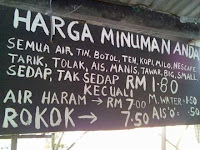 HARGA MINUMAN ANDA
SEMUA AIR, TIN, BOTOL, TEH, KOPI, MILO, NESCAFE
TARIK, TOLAK, AIS, MANIS, TAWAR, BIG, SMALL
SEDAP, TAK SEDAP RM 1.80
KECUALI
AIR HARAM → RM 7.00 M.WATER = 1.50
ROKOK → 7.50 AIS 'O' = .50